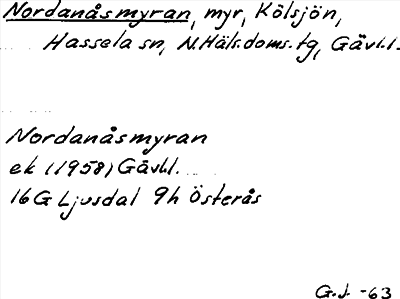 Nordanåsmyran, myr, Kölsjön,
Hassela sn, N.Häls.doms.tg, Gävl.l.
Nordanåsmyran
ek (1958) Gävl.l.
16G Ljusdal 9h Österås
G.J. -63